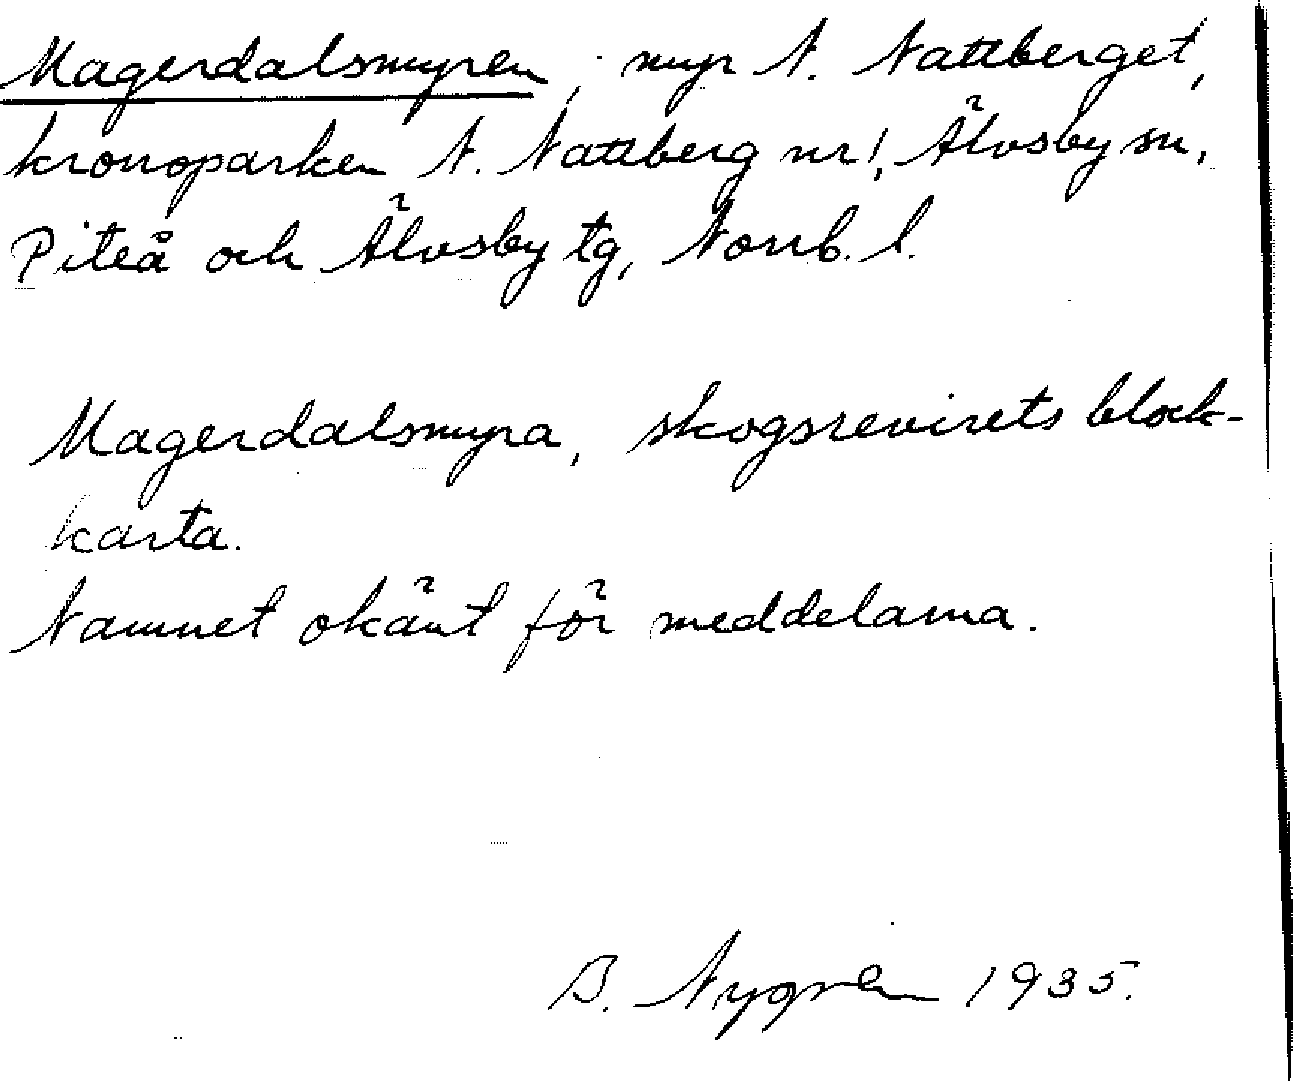 Magerdalsmyren, myr N. Nattberget,
kronoparken N. Nattberg nr 1, Älvsby sn,
Piteå och Älvsby tg, Norrb. l.
Magerdalsmyra, skogsrevirets block-
karta.
Namnet okänt för meddelarna.
B. Nygren 1935.